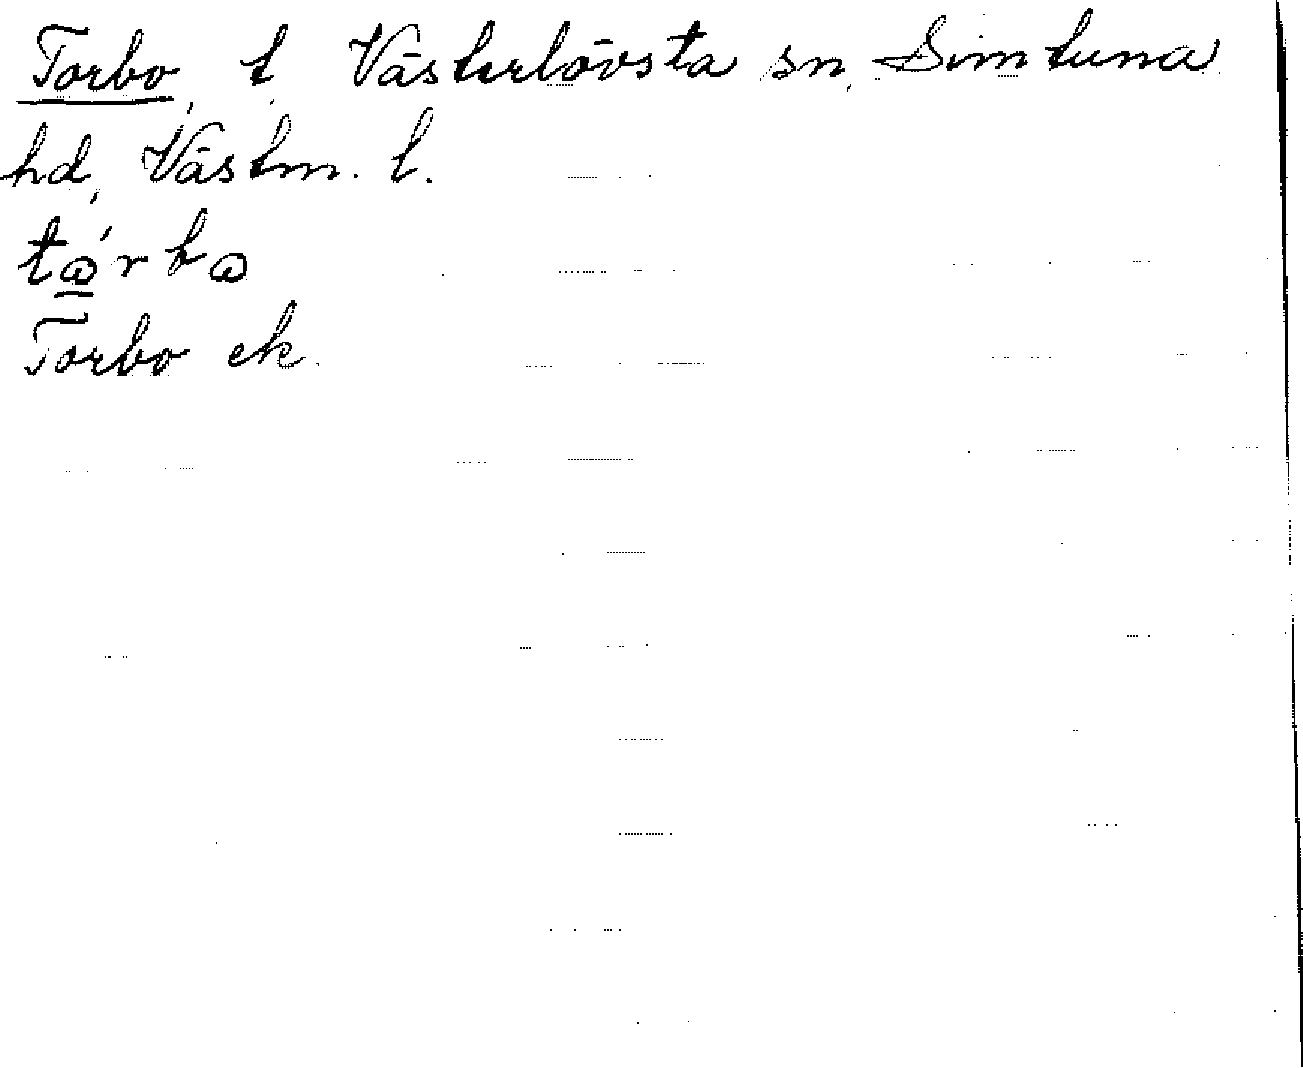 Torbo, t. Västerlövsta sn, Simtuna
hd, Västm. l.
tꞷ́rbꞷ
Torbo ek.